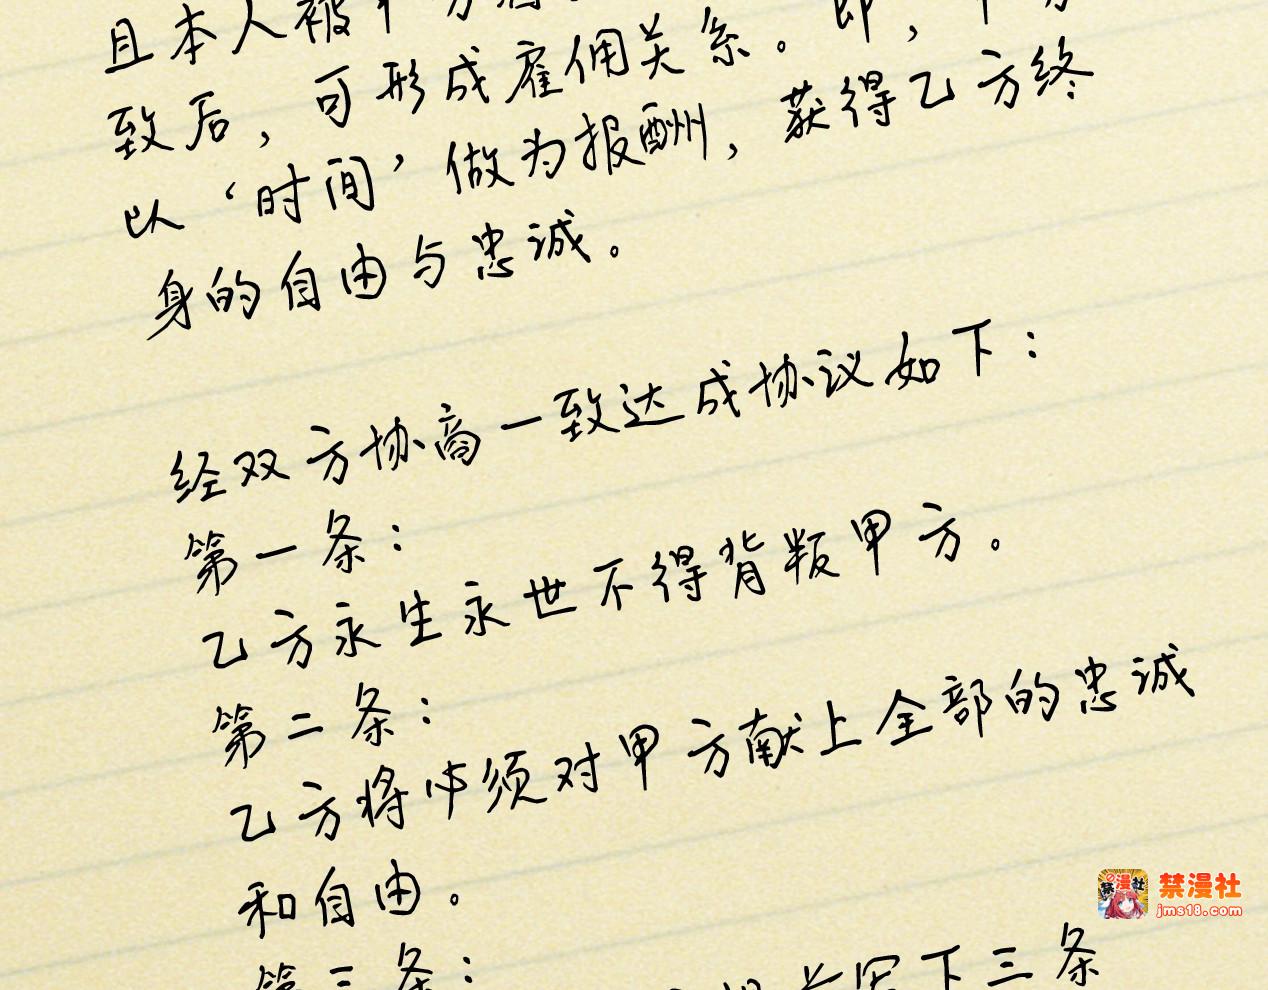 且本人被甲方
致后，可形成雇佣关系。即，甲方
以‘时间’做为报酬，获得乙方终
身的自由与忠诚。
经双方协商一致达成协议如下：
第一条：
乙方永生永世不得背叛甲方。
第二条：
乙方将必须对甲方献上全部的忠诚
和自由。
第三条：
下三条
禁漫社
jms18.com